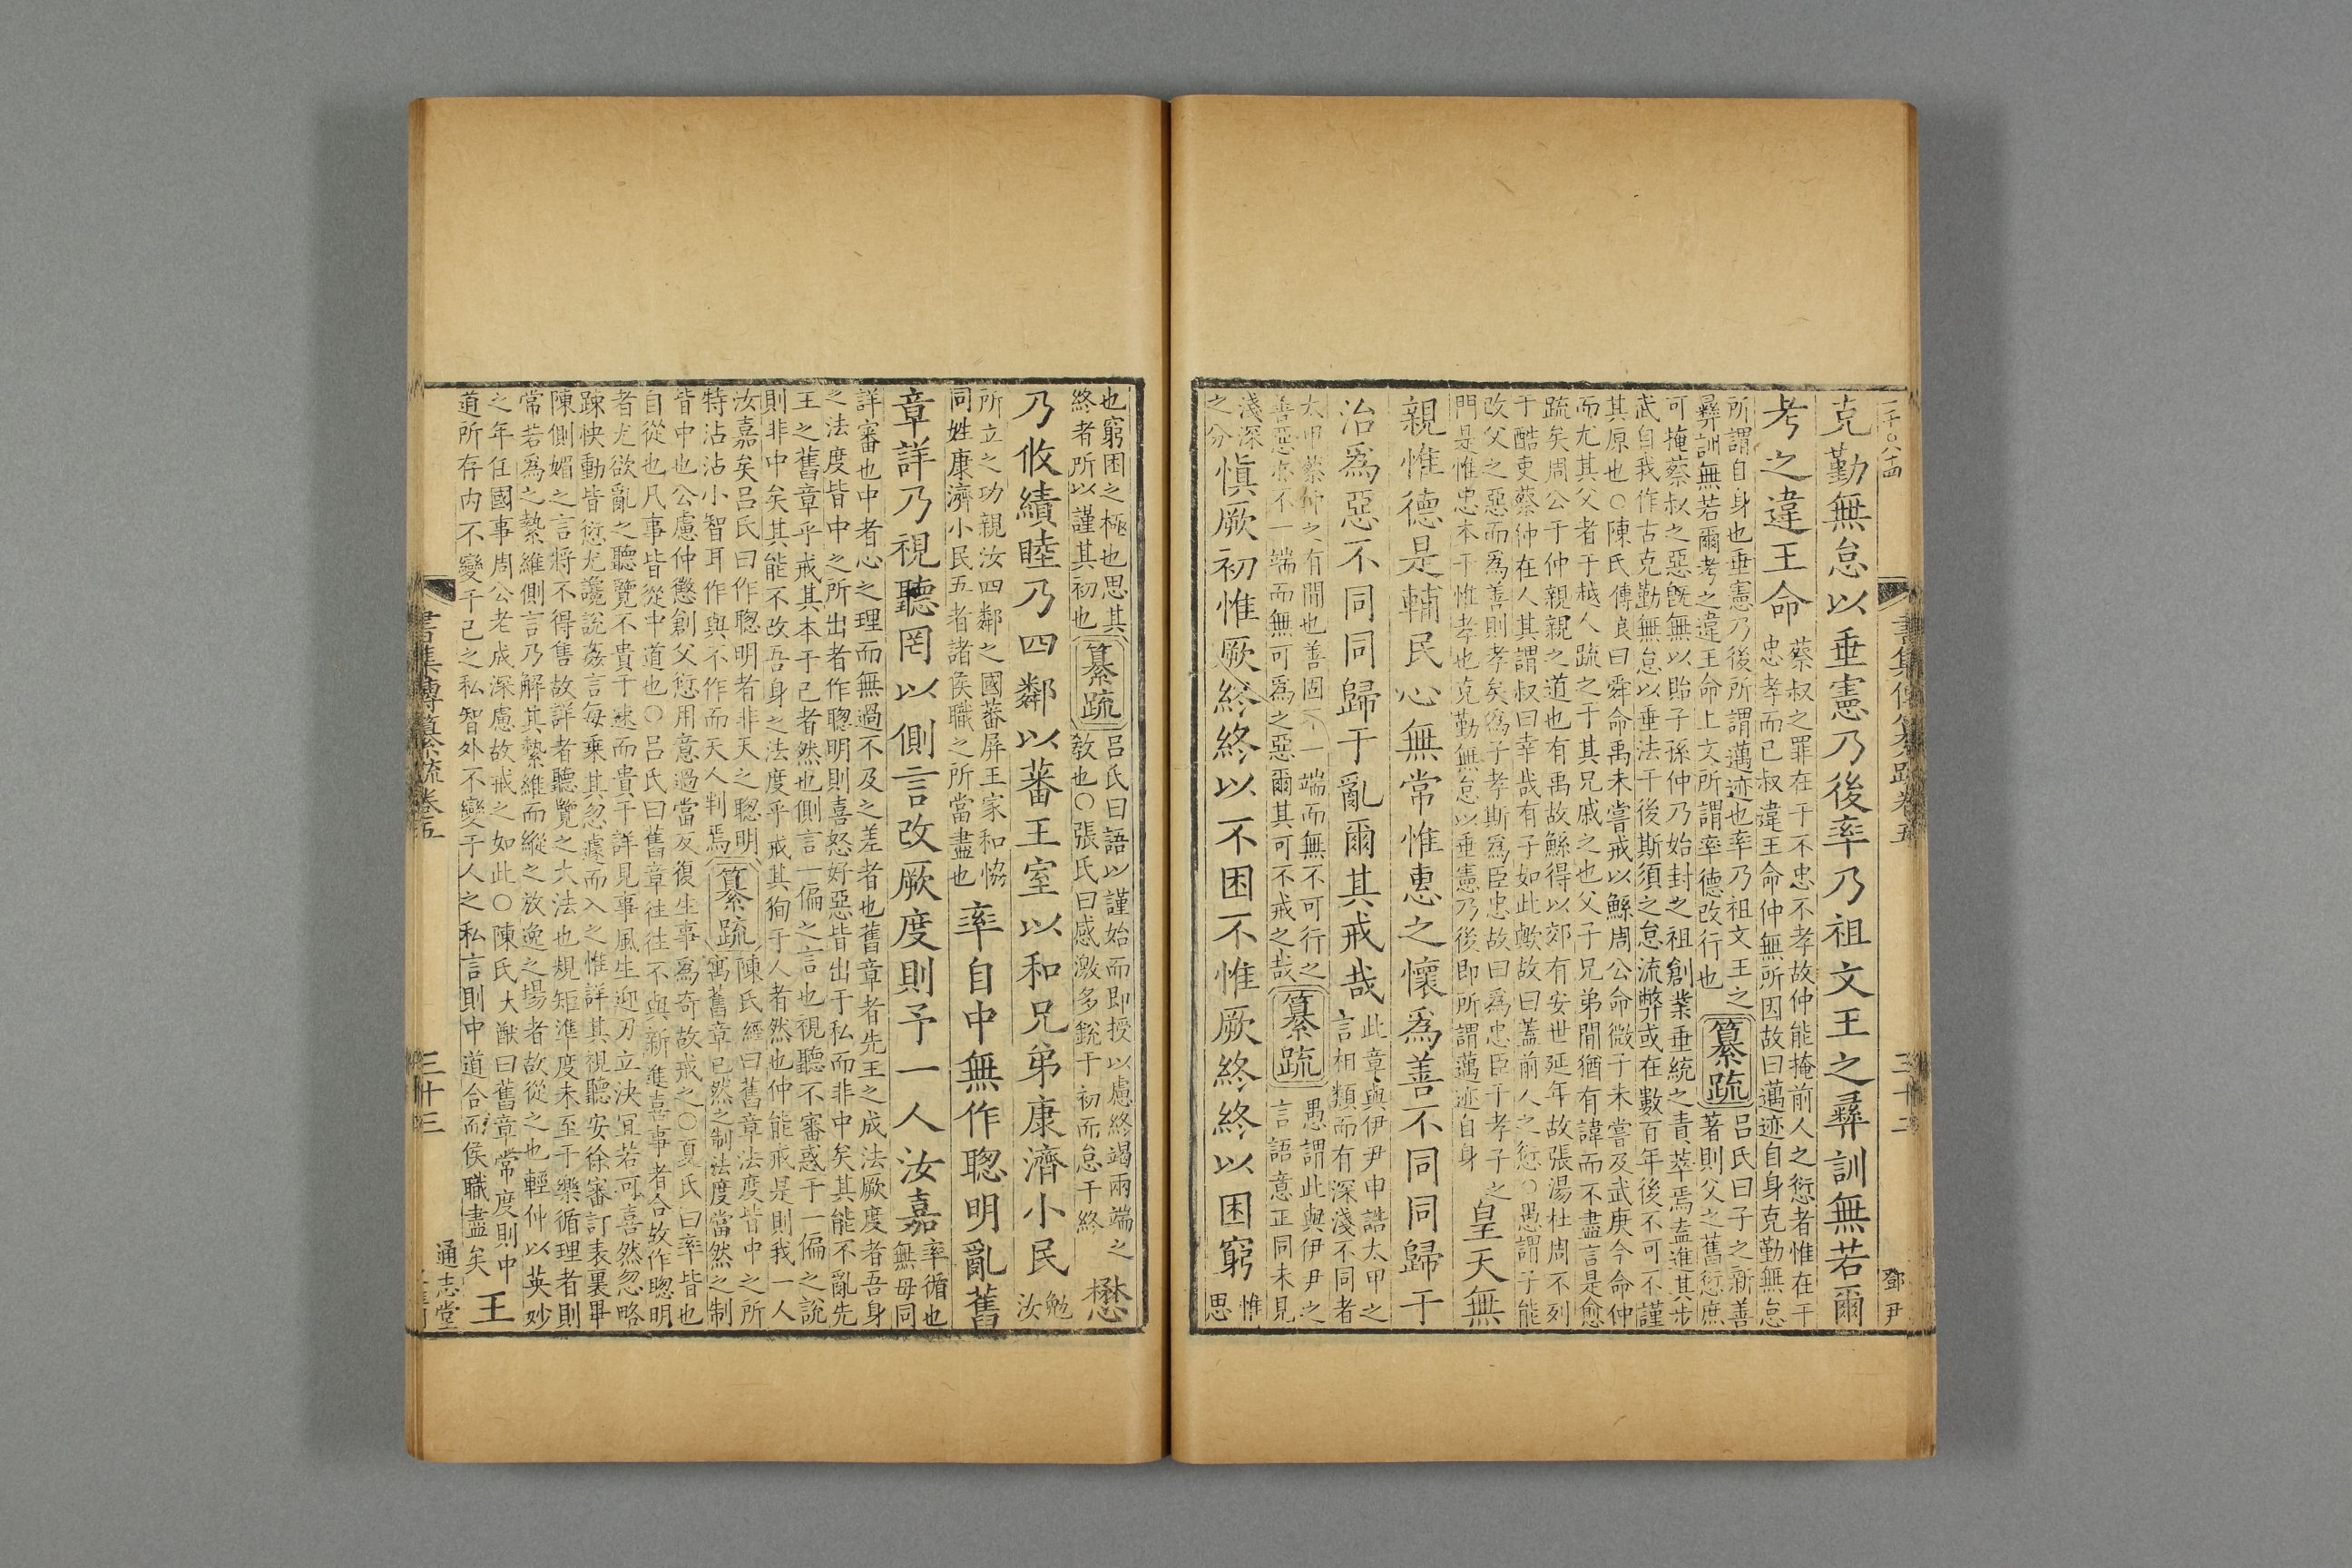 克勤無怠以垂憲乃後率乃祖文王之彞訓無若爾
考之違王命
蔡叔之罪在于不忠不孝故仲能掩前人之愆者惟在于
忠孝而已叔違王命仲無所因故曰邁迹自身克勤無怠
所謂自身也垂憲乃後所謂邁迹也率乃祖文王之
彞訓無若爾考之違王命上文所謂率德改行也
纂疏
呂氏曰子之新善
著則父之舊愆庶
可掩蔡叔之惡旣無以貽子孫仲乃始封之祖創業垂統之責萃焉盍進其步
武自我作古克勤無怠以垂法于後斯須之怠流弊或在數百年後不可不謹
其原也○陳氏傅良曰舜命禹未嘗戒以鯀周公命微子未嘗及武庚今命仲
而尤其父者于越人疏之于其兄戚之也父子兄弟間猶有諱而不盡言是愈
疏矣周公于仲親親之道也有禹故鯀得以郊有安世延年故張湯杜周不列
于酷吏蔡仲在人其謂叔曰幸哉有子如此歟故曰蓋前人之愆○愚謂子能
改父之惡而爲善則孝矣爲子孝斯爲臣忠故曰爲忠臣于孝子之
門是惟忠本于惟孝也克勤無怠以垂憲乃後即所謂邁迹自身
皇天無
親惟德是輔民心無常惟惠之懷爲善不同同歸于
治爲惡不同同歸于亂爾其戒哉
此章與伊尹申誥太甲之
言相類而有深淺不同者
太甲蔡仲之有間也善固不一端而無不可行之
善惡亦不一端而無可爲之惡爾其可不戒之哉
纂疏
愚謂此與伊尹之
言語意正同未見
淺深
之分
愼厥初惟厥終終以不困不惟厥終終以困窮
惟
思
二千○八十四
書集傳纂疏卷五
三十二
鄧尹
也窮困之極也思其
終者所以謹其初也
纂疏
呂氏曰語以謹始而即授以慮終竭兩端之
敎也○張氏曰感激多銳于初而怠于終
懋
乃攸績睦乃四鄰以蕃王室以和兄弟康濟小民
勉
汝
所立之功親汝四鄰之國蕃屏王家和恊
同姓康濟小民五者諸侯職之所當盡也
率自中無作聦明亂舊
章詳乃視聽罔以側言改厥度則予一人汝嘉
率循也
無毋同
詳審也中者心之理而無過不及之差者也舊章者先王之成法厥度者吾身
之法度皆中之所出者作聦明則喜怒好惡皆出于私而非中矣其能不亂先
王之舊章乎戒其本于己者然也側言一偏之言也視聽不審惑于一偏之說
則非中矣其能不改吾身之法度乎戒其徇于人者然也仲能戒是則我一人
汝嘉矣呂氏曰作聦明者非天之聦明
特沾沾小智耳作與不作而天人判焉
纂疏
陳氏經曰舊章法度皆中之所
寓舊章已然之制法度當然之制
皆中也公慮仲懲創父愆用意過當反復生事爲奇故戒之○夏氏曰率皆也
自從也凡事皆從中道也○呂氏曰舊章往往不與新進喜事者合故作聦明
者尤欲亂之聽覽不貴于速而貴于詳見事風生迎刃立決冝若可喜然忽略
踈怏動皆愆尤讒說姦言每乗其忽遽而入之惟詳其視聽安徐審訂表裏畢
陳側媚之言將不得售故詳者聽覽之大法也規矩準度未至于樂循理者則
常若爲之縶維側言乃解其縶維而縱之放逸之塲者故從之也輕仲以英妙
之年任國事周公老成深慮故戒之如此○陳氏大猷曰舊章常度則中
道所存内不變于己之私智外不變于人之私言則中道合而侯職盡矣
王
書集傳纂疏卷五
三十三
通志堂